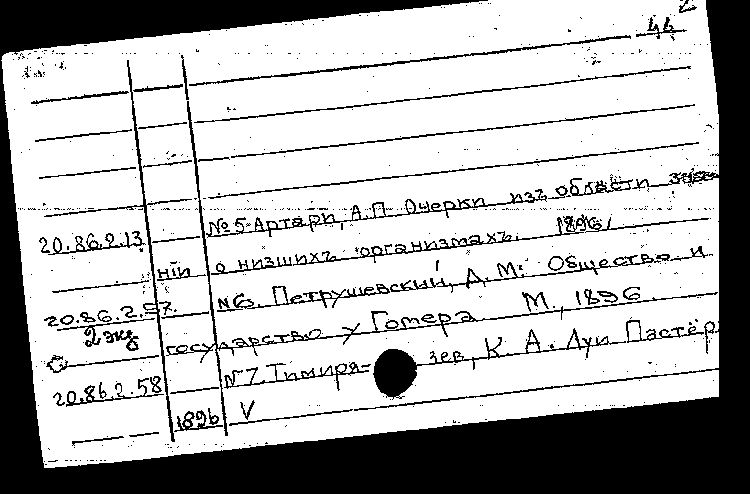 44
20.86.2.13 № 5 Артари, А.П. Очерки изъ области
ній о низшихъ организмахъ. 1896,
20.86.2.57. № 6. Петрушевский, Д. М: Общество и
2 экз государство у Гомера М., 1896.
20.86.2.58 № 7. Тимиря- зев, К. А. Луи Пастёр
1896 V